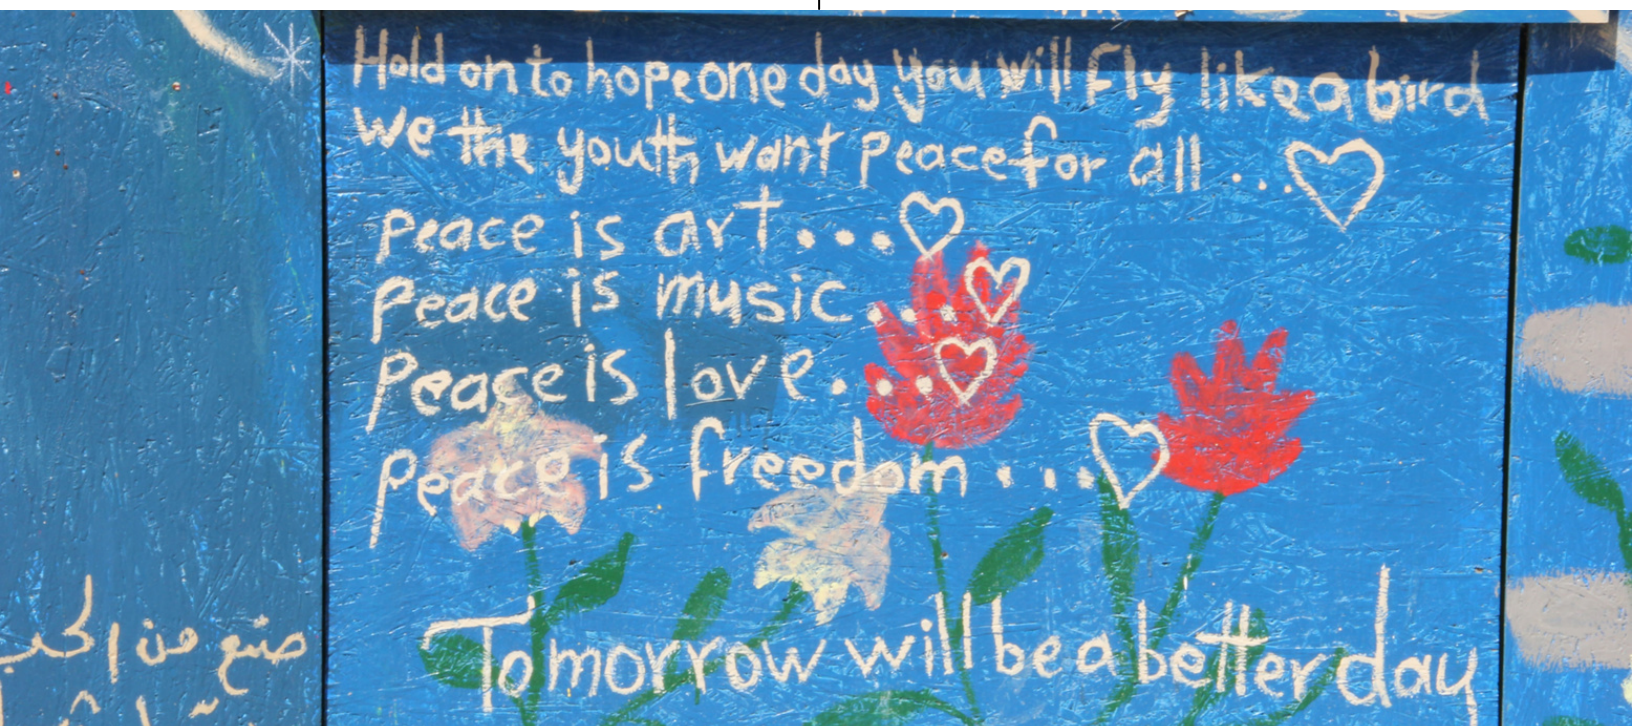 Hold on to hope one day you will fly like a bird
We the youth want peace for all ...
peace is art ...
peace is music ...
peace is love ...
peace is freedom ...
Tomorrow will be a better day
صنع من